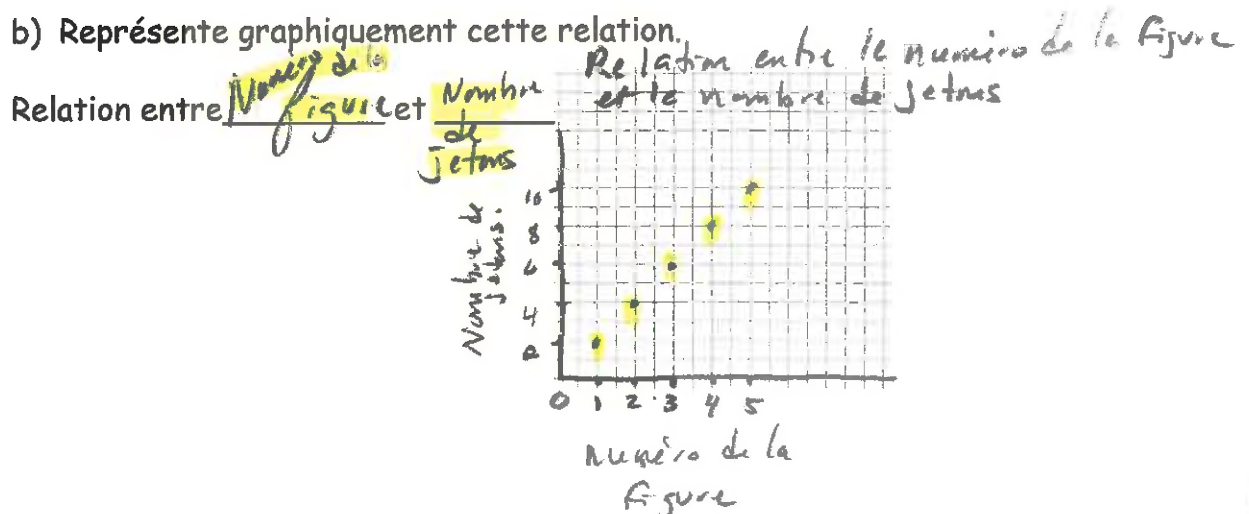 b) Représente graphiquement cette relation.
Relation entre le numéro de la figure
et le nombre de jetons
Relation entre Numéro de la figure et Nombre de jetons
Nombre de jetons.
10
8
6
4
2
0 1 2 3 4 5
numéro de la
figure